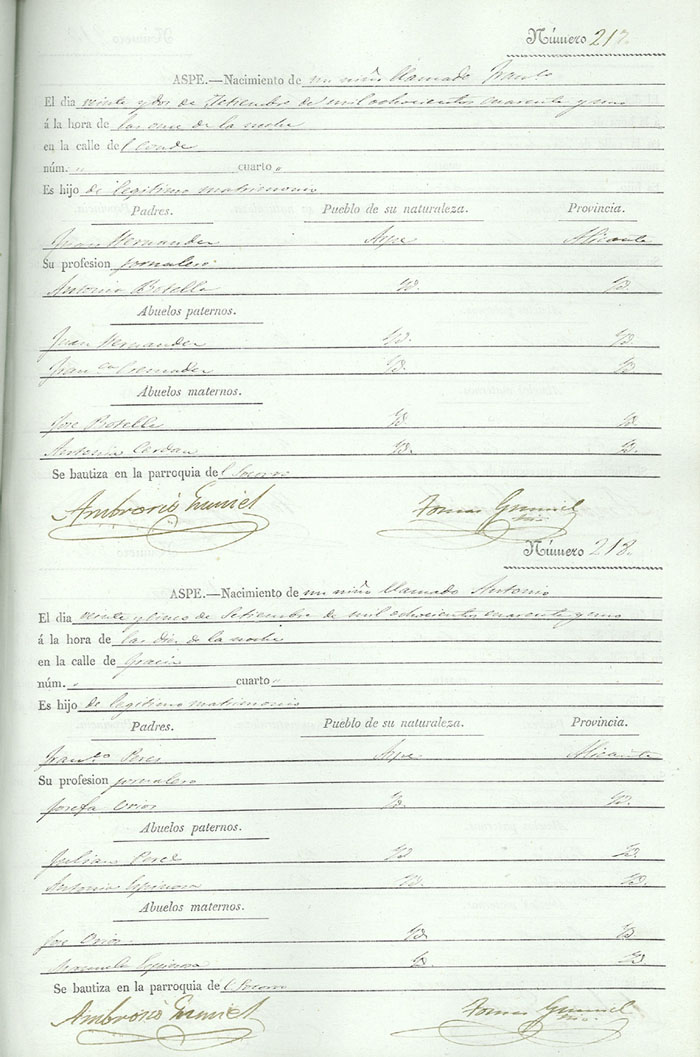 Número 217.
ASPE.—Nacimiento de un niño llamado Franco
El dia veinte y dos de Setiembre de mil ochocientos cuarenta y uno
á la hora de las once de la noche
en la calle de l Conde
núm. " cuarto "
Es hijo de legitimo matrimonio
Padres. Pueblo de su naturaleza. Provincia.
Juan Hernandez Aspe Alicante
Su profesion jornalero
Antonia Botella Yd. Yd.
Abuelos paternos.
Juan Hernandez Yd. Yd.
Franca Cremades Yd. Yd.
Abuelos maternos.
Jose Botella Yd Yd.
Antonia Cerdan Yd. Yd.
Se bautiza en la parroquia de l Socorro
Ambrosio Gumiel Tomas Gumiel
Número 218.
ASPE.—Nacimiento de un niño llamado Antonio
El dia veinte y cinco de Setiembre de mil ochocientos cuarenta y uno
á la hora de las diez de la noche
en la calle de Gracia
núm. " cuarto "
Es hijo de legitimo matrimonio
Padres. Pueblo de su naturaleza. Provincia.
Franco Peres Aspe Alicante
Su profesion jornalero
Josefa Yd. Yd.
Abuelos paternos.
Julian Perez Yd Yd.
Antonia Espinosa Yd. Yd.
Abuelos maternos.
Jose Yd. Yd
Manuela Espinosa Yd Yd.
Se bautiza en la parroquia de l Socorro
Ambrosio Gumiel Tomas Gumiel